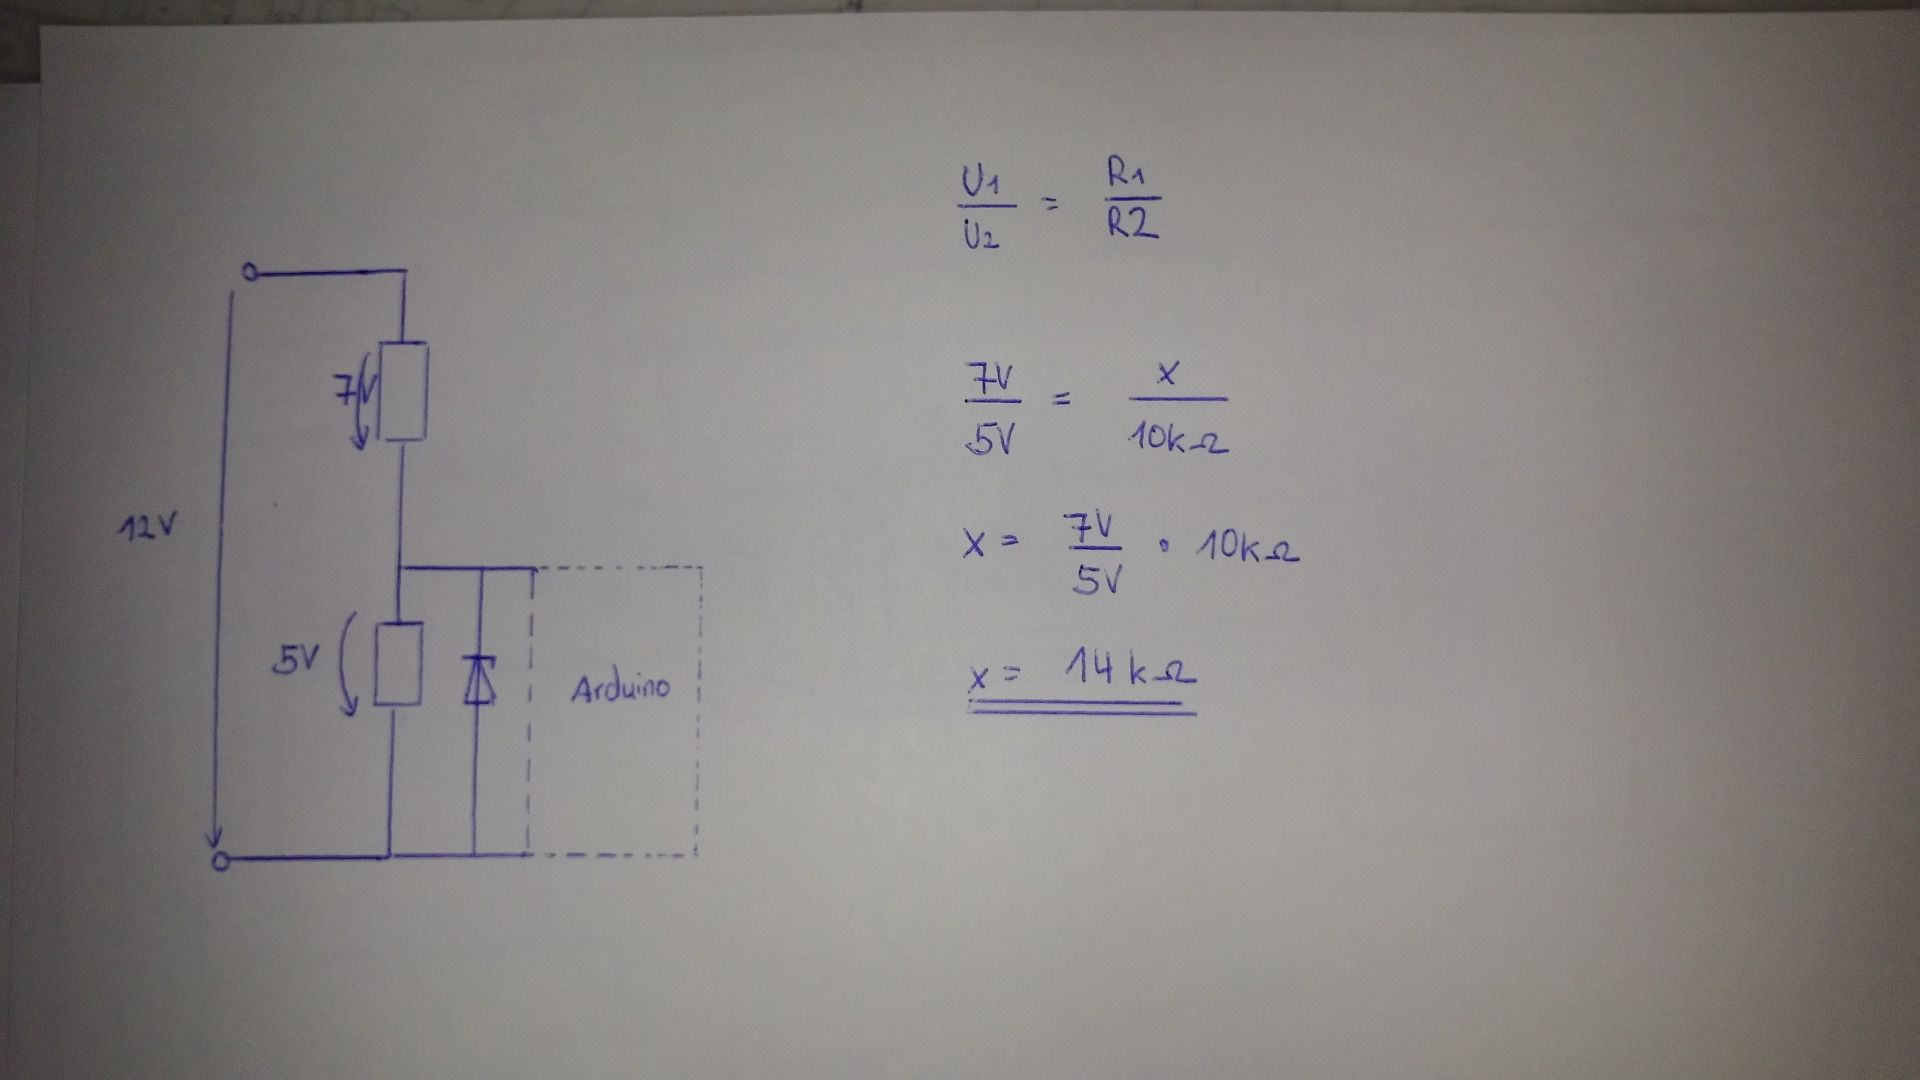 12V
7V
5V
Arduino
U1/U2 = R1/R2
7V/5V = x/10kΩ
x = 7V/5V · 10kΩ
x = 14kΩ